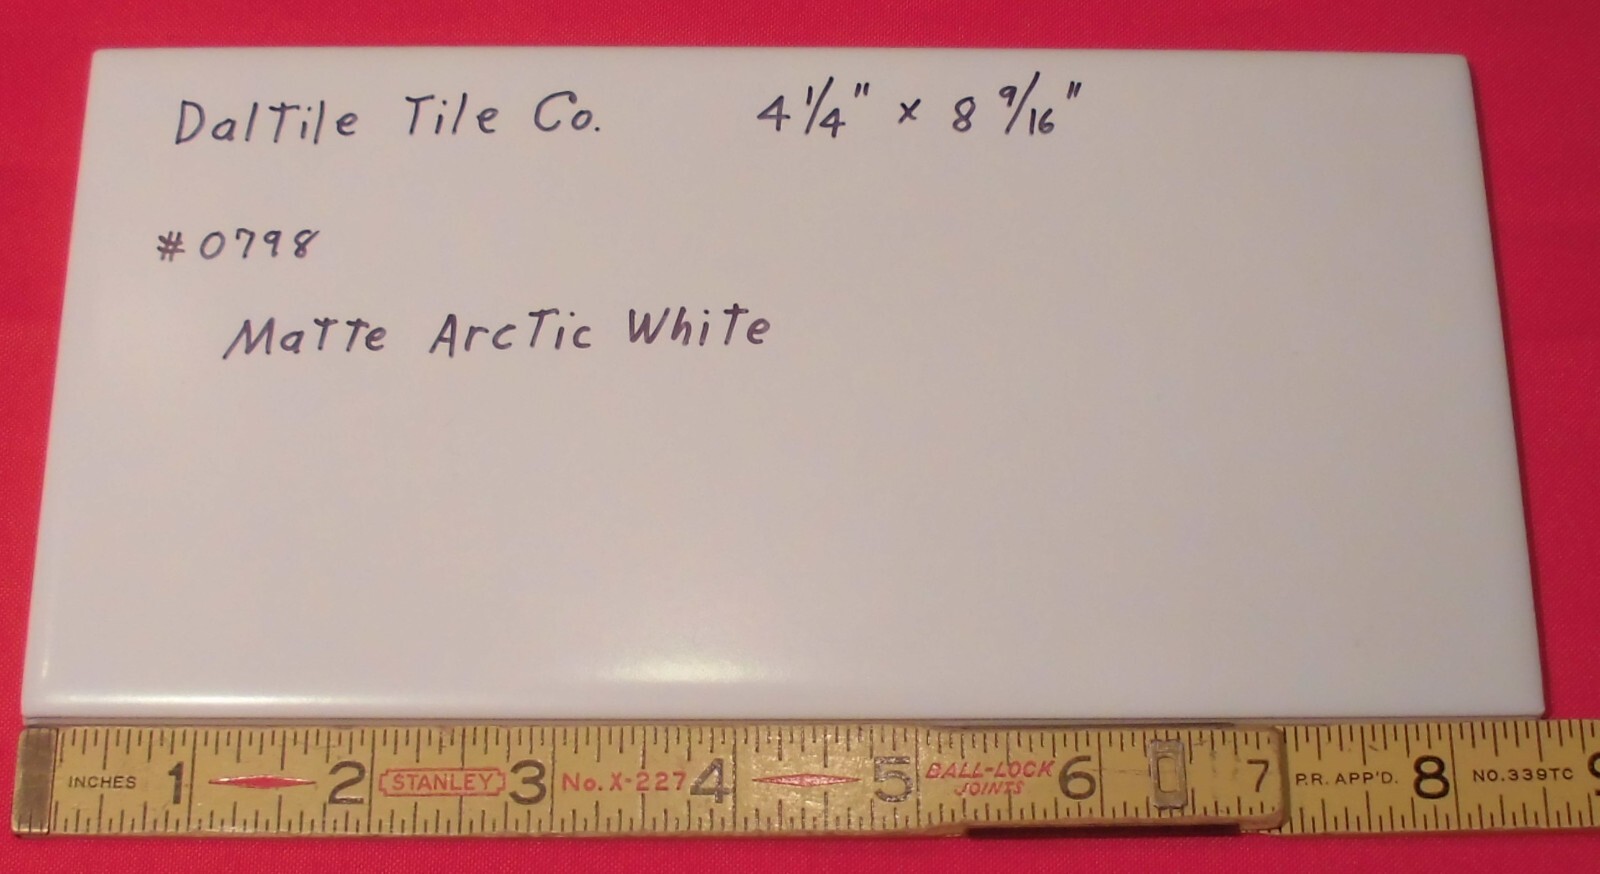 DalTile Tile Co. 4 1/4" x 8 9/16"
#0798
Matte Arctic White
INCHES 1 2 STANLEY 3 No. X-227 4 5 BALL-LOCK JOINTS 6 7 P.R. APP'D. 8 NO.339TC 9